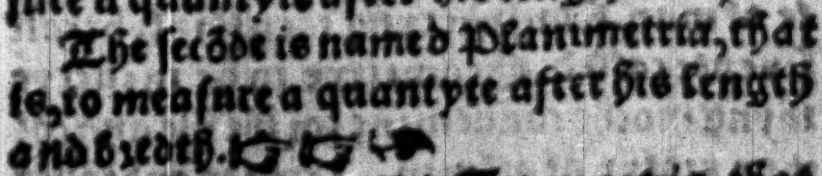 sure a quantyte after
The secōde is named Planimetria, that
is, to measure a quantyte after his length
and bredth. ☞ ☞ ☙